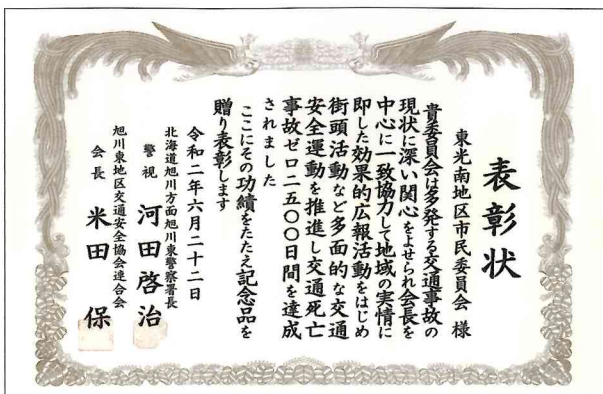 表彰状
東光南地区市民委員会 様
貴委員会は多発する交通事故の
現状に深い関心をよせられ会長を
中心に一致協力して地域の実情に
即した効果的広報活動をはじめ
街頭活動など多面的な交通
安全運動を推進し交通死亡
事故ゼロ二五〇〇日間を達成
されました
ここにその功績をたたえ記念品を
贈り表彰します
令和二年六月二十二日
北海道旭川方面旭川東警察署長
警視 河田啓治
旭川東地区交通安全協会連合会
会長 米田 保